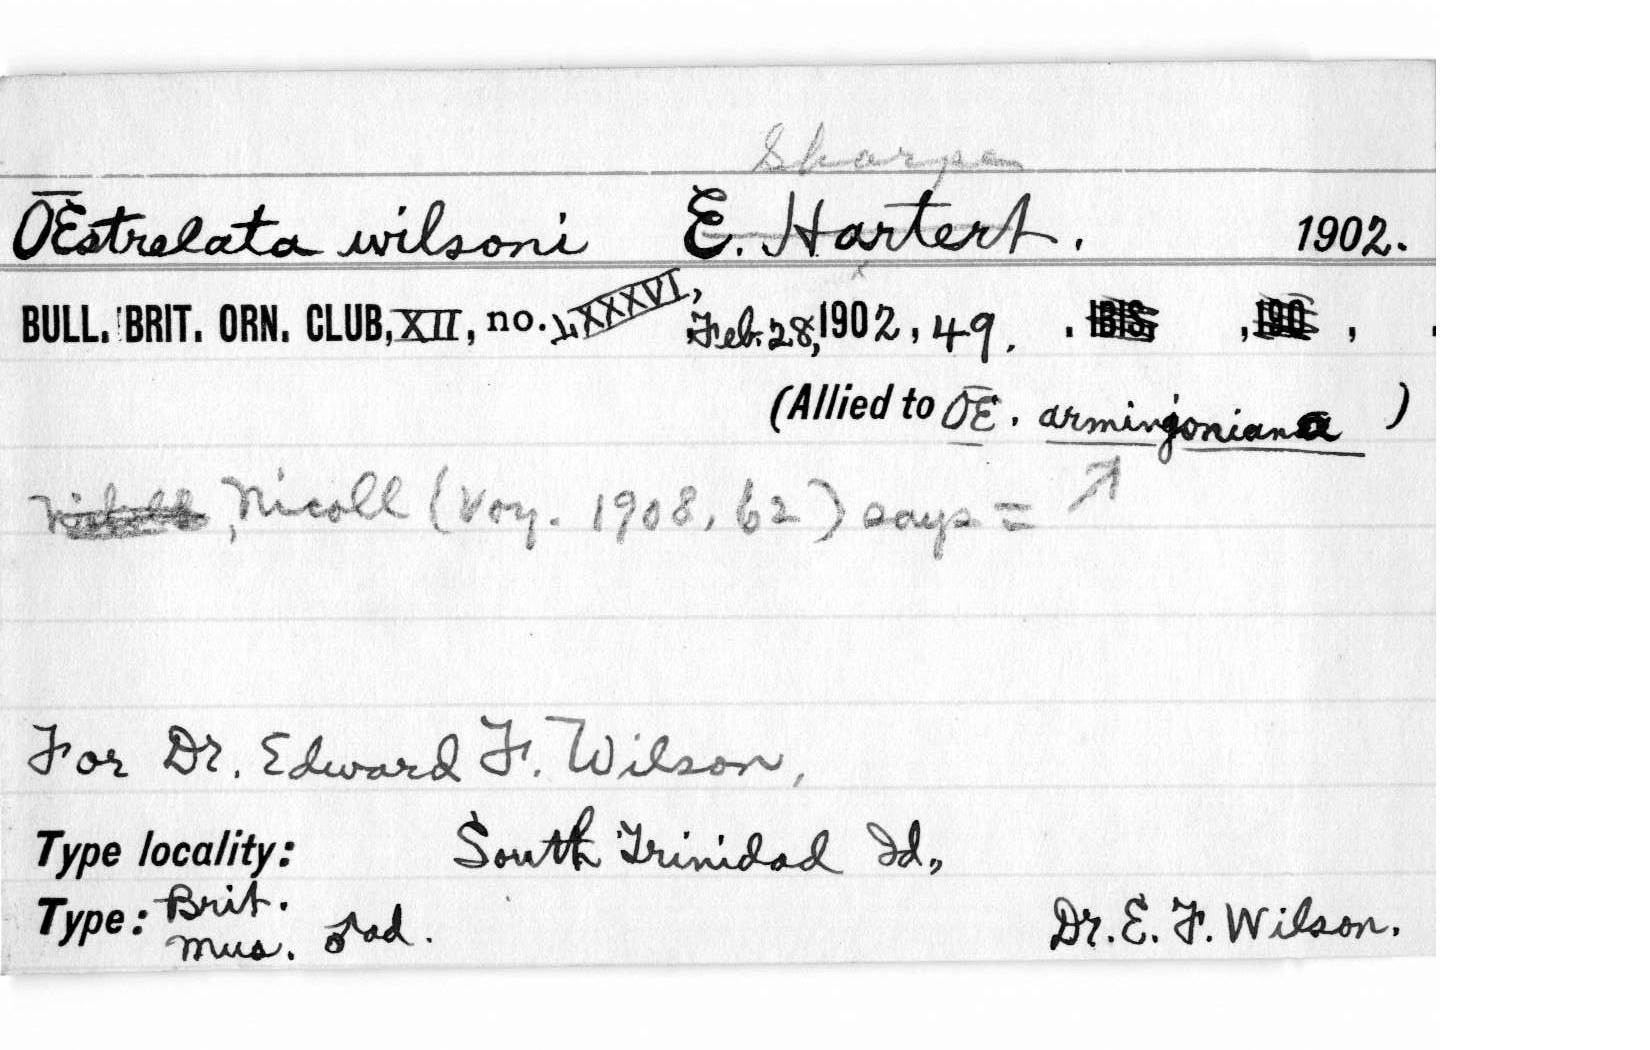 Sharpe
ŒEstrelata wilsoni E. Hartert. 1902.
BULL. BRIT. ORN. CLUB, XII, no. LXXXVI, Feb. 28, 1902, 49. . IBIS, , 190 , .
(Allied to ŒE. armingoniana )
, Nicoll (Voy. 1908, 62) says = ↗
For Dr. Edward F. Wilson,
Type locality: South Trinidad Id.,
Type: Brit. Mus. ♂ ad. Dr. E. F. Wilson.